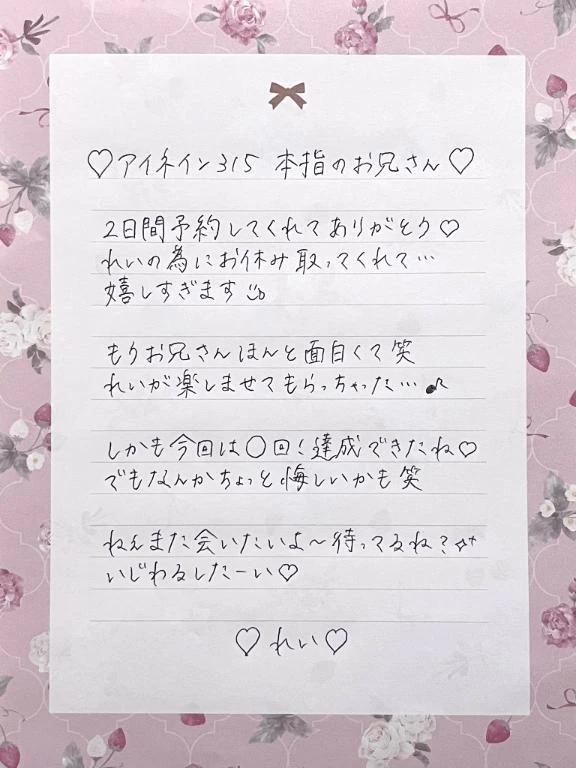 ♡アイネイン315 本指のお兄さん♡
2日間予約してくれてありがとう♡
れいの為にお休み取ってくれて…
嬉しすぎます
もうお兄さんほんと面白くて笑
れいが楽しませてもらっちゃった…♪
しかも今回は〇回！達成できたね♡
でもなんかちょっと悔しいかも笑
ねぇまた会いたいよ〜待ってるね？
いじわるしたーい♡
♡れい♡